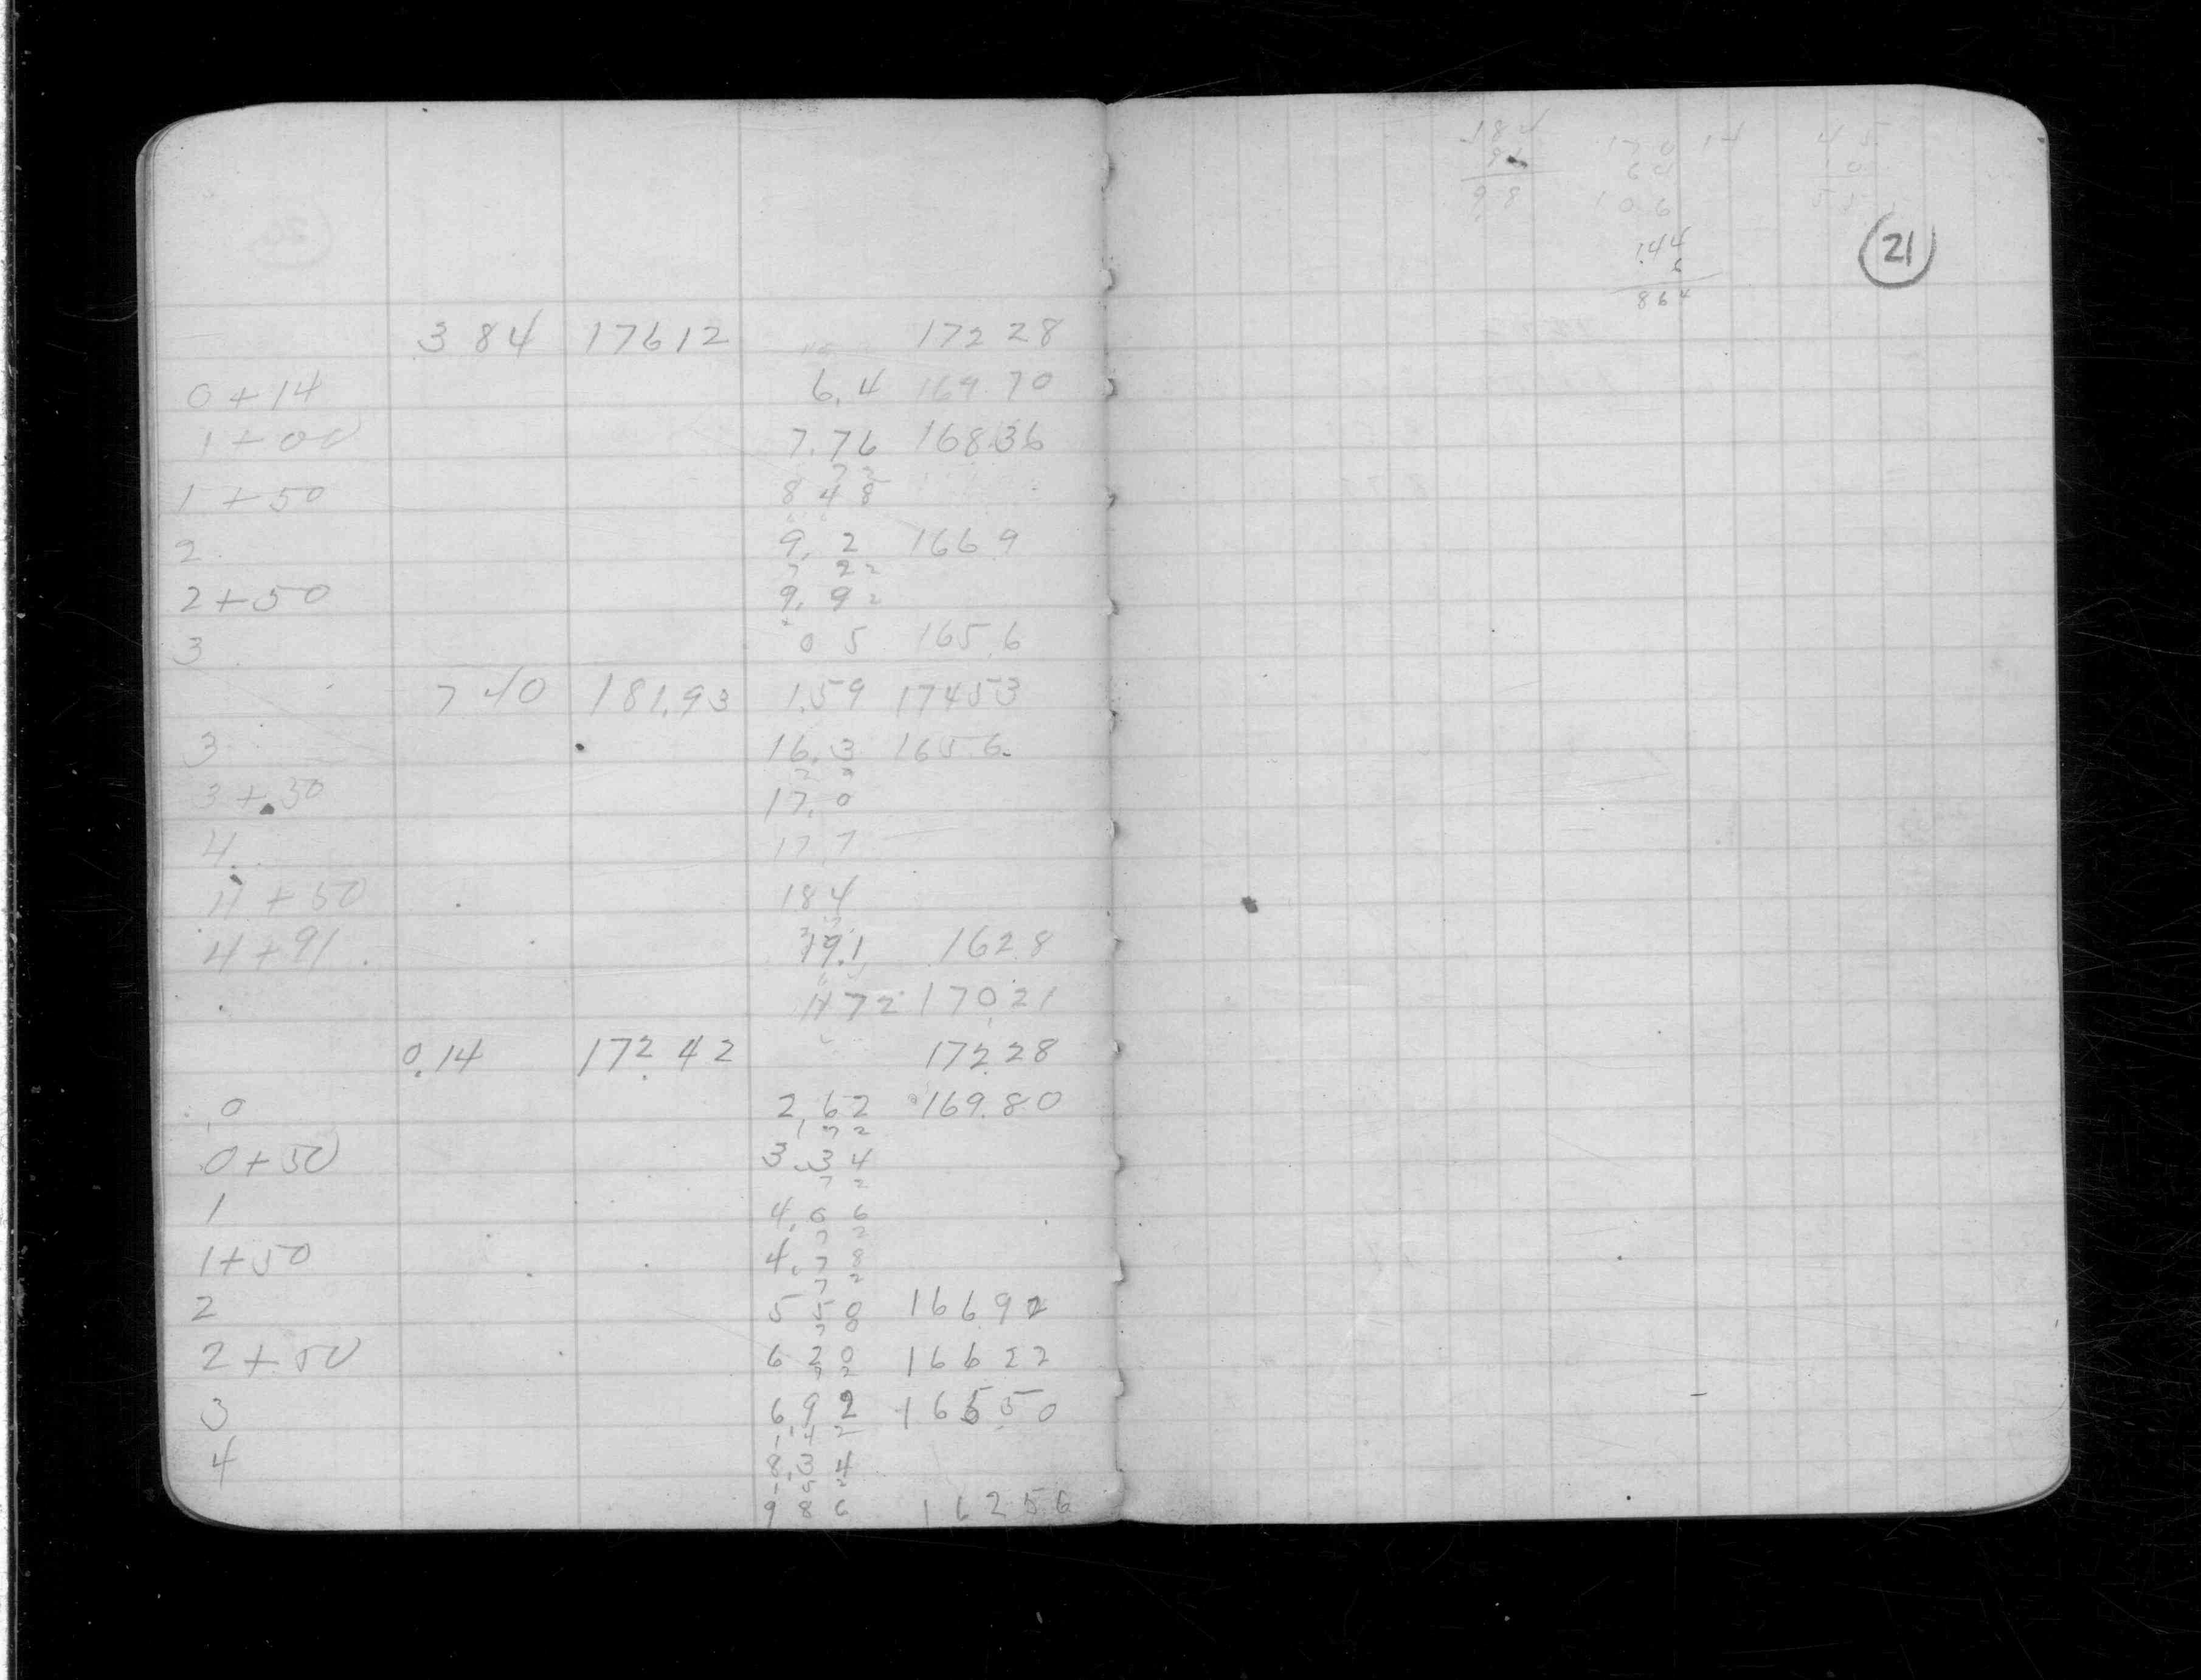 3 84 176 12 172 28
0 + 14 6.4 169.70
1 + 00 7.76 168.36
7 2
1 + 50 8 4 8
2 9. 2 166 9
7 2 2
2 + 50 9. 9 2
3 0 5 165.6
7 40 181.93 1.59 174 53
3 16.3 165 6
3 + 50 17.0
4 17.7
4 + 50 18 4
4 + 91 19.1 162 8
11 72 170.21
0.14 172.42 172.28
0 2.62 169.80
7 2
0 + 50 3.34
7 2
1 4.06
7 2
1 + 50 4.78
7 2
2 5 5 8 166 9 2
2 + 50 6 2 0 166 2 2
7 2
3 6 9 2 165 5 0
1 4 2
4 8.34
1 5 2
9 8 6 162 5 6
182
9 8
170 14
6 4
1 0 6
4 5
1 0
1.44
6
8 6 4
21